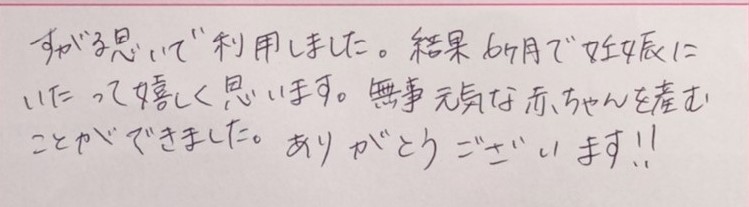 すがる思いで利用しました。結果6ヶ月で妊娠に
いたって嬉しく思います。無事元気な赤ちゃんを産む
ことができました。ありがとうございます!!